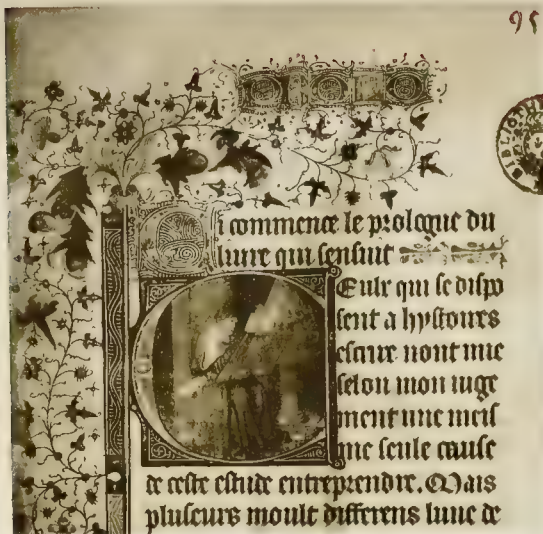 95
BIBLIOTH
Ci commence le prologue du
liure qui sensuit
Ceulx qui se dispo
sent a hystoires
escrire nont mie
selon mon iuge
ment une meis
me seule cause
de ceste estude entreprendre. Mais
pluseurs moult differens lune de